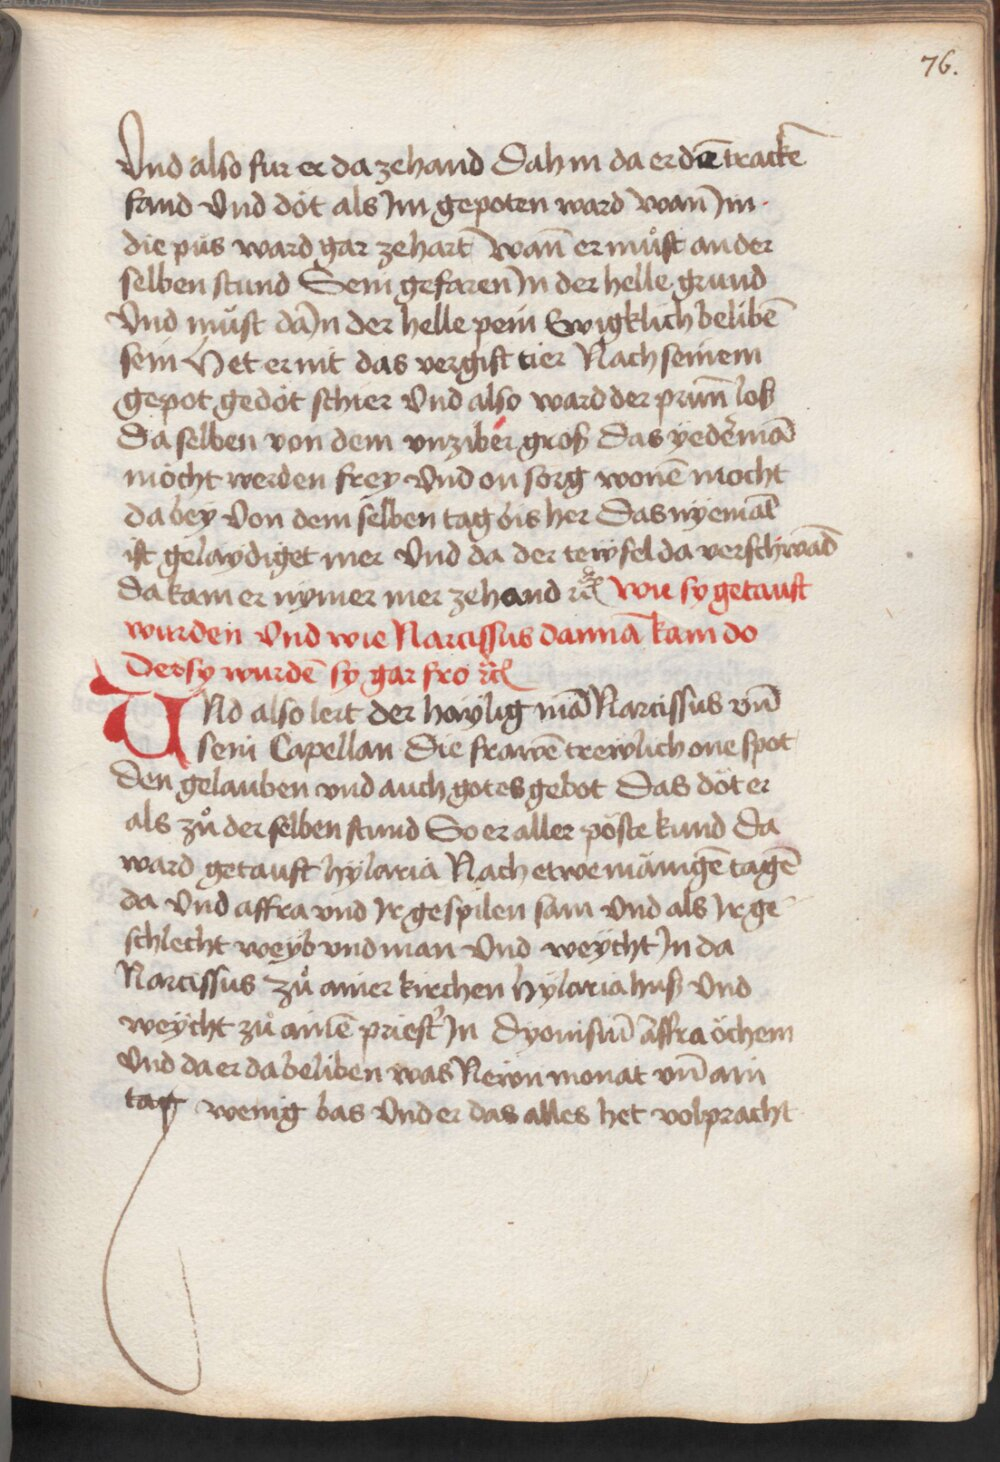 76.
Vnd also fur er da zehand Dahin da er dē tracken̄
fand Vnd döt als Jm gepoten ward wañ Jm
die pus ward gar zehart wañ er můst an der
selben stund Sein gefaren Jn der helle grund
Vnd můst da Jn der helle pein Ewigklich belibē
sein Het er nit das vergift tier Nach seinem
gepot gedöt schier Vnd also ward der prunn̄ loß
Da selben von dem vnziber groß Das yederman̄
möcht werden frey Vnd on sorg wonē mocht
da bey Von dem selben tag bis her Das nyemāt
ist gelaydiget mer Vnd da der tewfel da verschwād
Da kam er nymer mer zehand ꝛc̄ wie sy getauft
wurden Vnd wie Narcissus dannā kam do
Der sy wurdē sy gar fro ꝛc̄
VNd also lert der haylig mā Narcissus vn̄
sein Capellan Die frawē trewlich one spot
den gelauben vnd auch gotes gebot Das döt er
als zů der selben stund So er aller pöste kund Da
ward getauft hylaria Nach etwe mänigē tagē
da Vnd affra vnd Jr gespilen sam Vnd als Jr ge
schlecht weyb vnd man Vnd weycht Jn da
Narcissus zů ainer kirchen hylaria huß Vnd
weycht zů ainē priest̄ Jn Dyonisiū affra öchem
Vnd da er da beliben was Newn monat vn̄ ain
tag wenig bas Vnd er das alles het volpracht